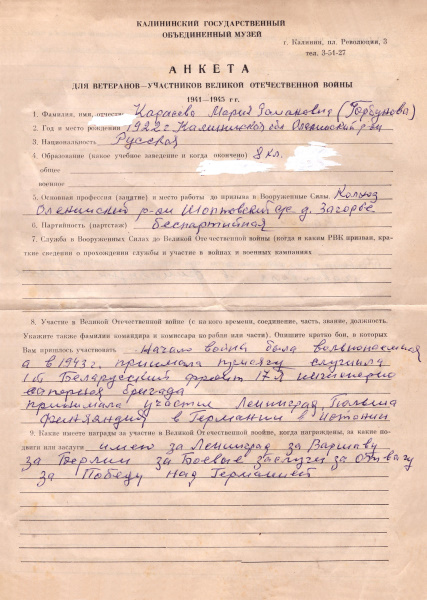 КАЛИНИНСКИЙ ГОСУДАРСТВЕННЫЙ
ОБЪЕДИНЕННЫЙ МУЗЕЙ
г. Калинин, пл. Революции, 3
тел. 3-51-27
АНКЕТА
ДЛЯ ВЕТЕРАНОВ—УЧАСТНИКОВ ВЕЛИКОЙ ОТЕЧЕСТВЕННОЙ ВОЙНЫ
1941—1945 гг.
1. Фамилия, имя, отчество Мария Романовна (Горбунова)
2. Год и место рождения 1922 г. Калининская обл Оленинский р-он
3. Национальность Русская
4. Образование (какое учебное заведение и когда окончено) 8 кл.
общее
военное
5. Основная профессия (занятие) и место работы до призыва в Вооруженные Силы. Колхоз
Оленинский р-он д. Загорье
6. Партийность (партстаж) Беспартийная
7. Служба в Вооруженных Силах до Великой Отечественной войны (когда и каким РВК призван, крат-
кие сведения о прохождении службы и участие в войнах и военных кампаниях
8. Участие в Великой Отечественной войне (с какого времени, соединение, часть, звание, должность.
Укажите также фамилии командира и комиссара корабля или части). Опишите кратко бои, в которых
Вам пришлось участвовать Начало войны была вольнонаемная
а в 1943 г. принимала присягу служила
1й Беларуский фронт 17я инженерно
саперная бригада
принимала участия Ленинград Польша
Финляндия в Германии в
9. Какие имеете награды за участие в Великой Отечественной войне, когда награждены, за какие по-
двиги или заслуги имею за Ленинград за Варшаву
за Берлин за Боевые заслуги за Отвагу
за Победу над Германией